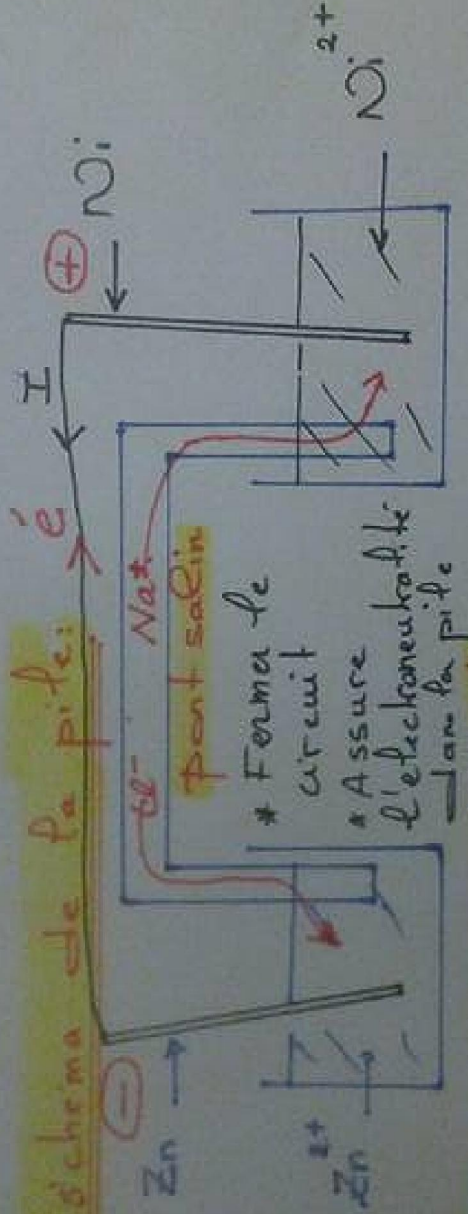 schema de la pile:
é
I
⊖
⊕
Zn
Ni
Cl⁻
Na⁺
pont salin
* Ferma le
circuit
* Assure
l'electroneutralité
dan la pile
Zn²⁺
Ni²⁺